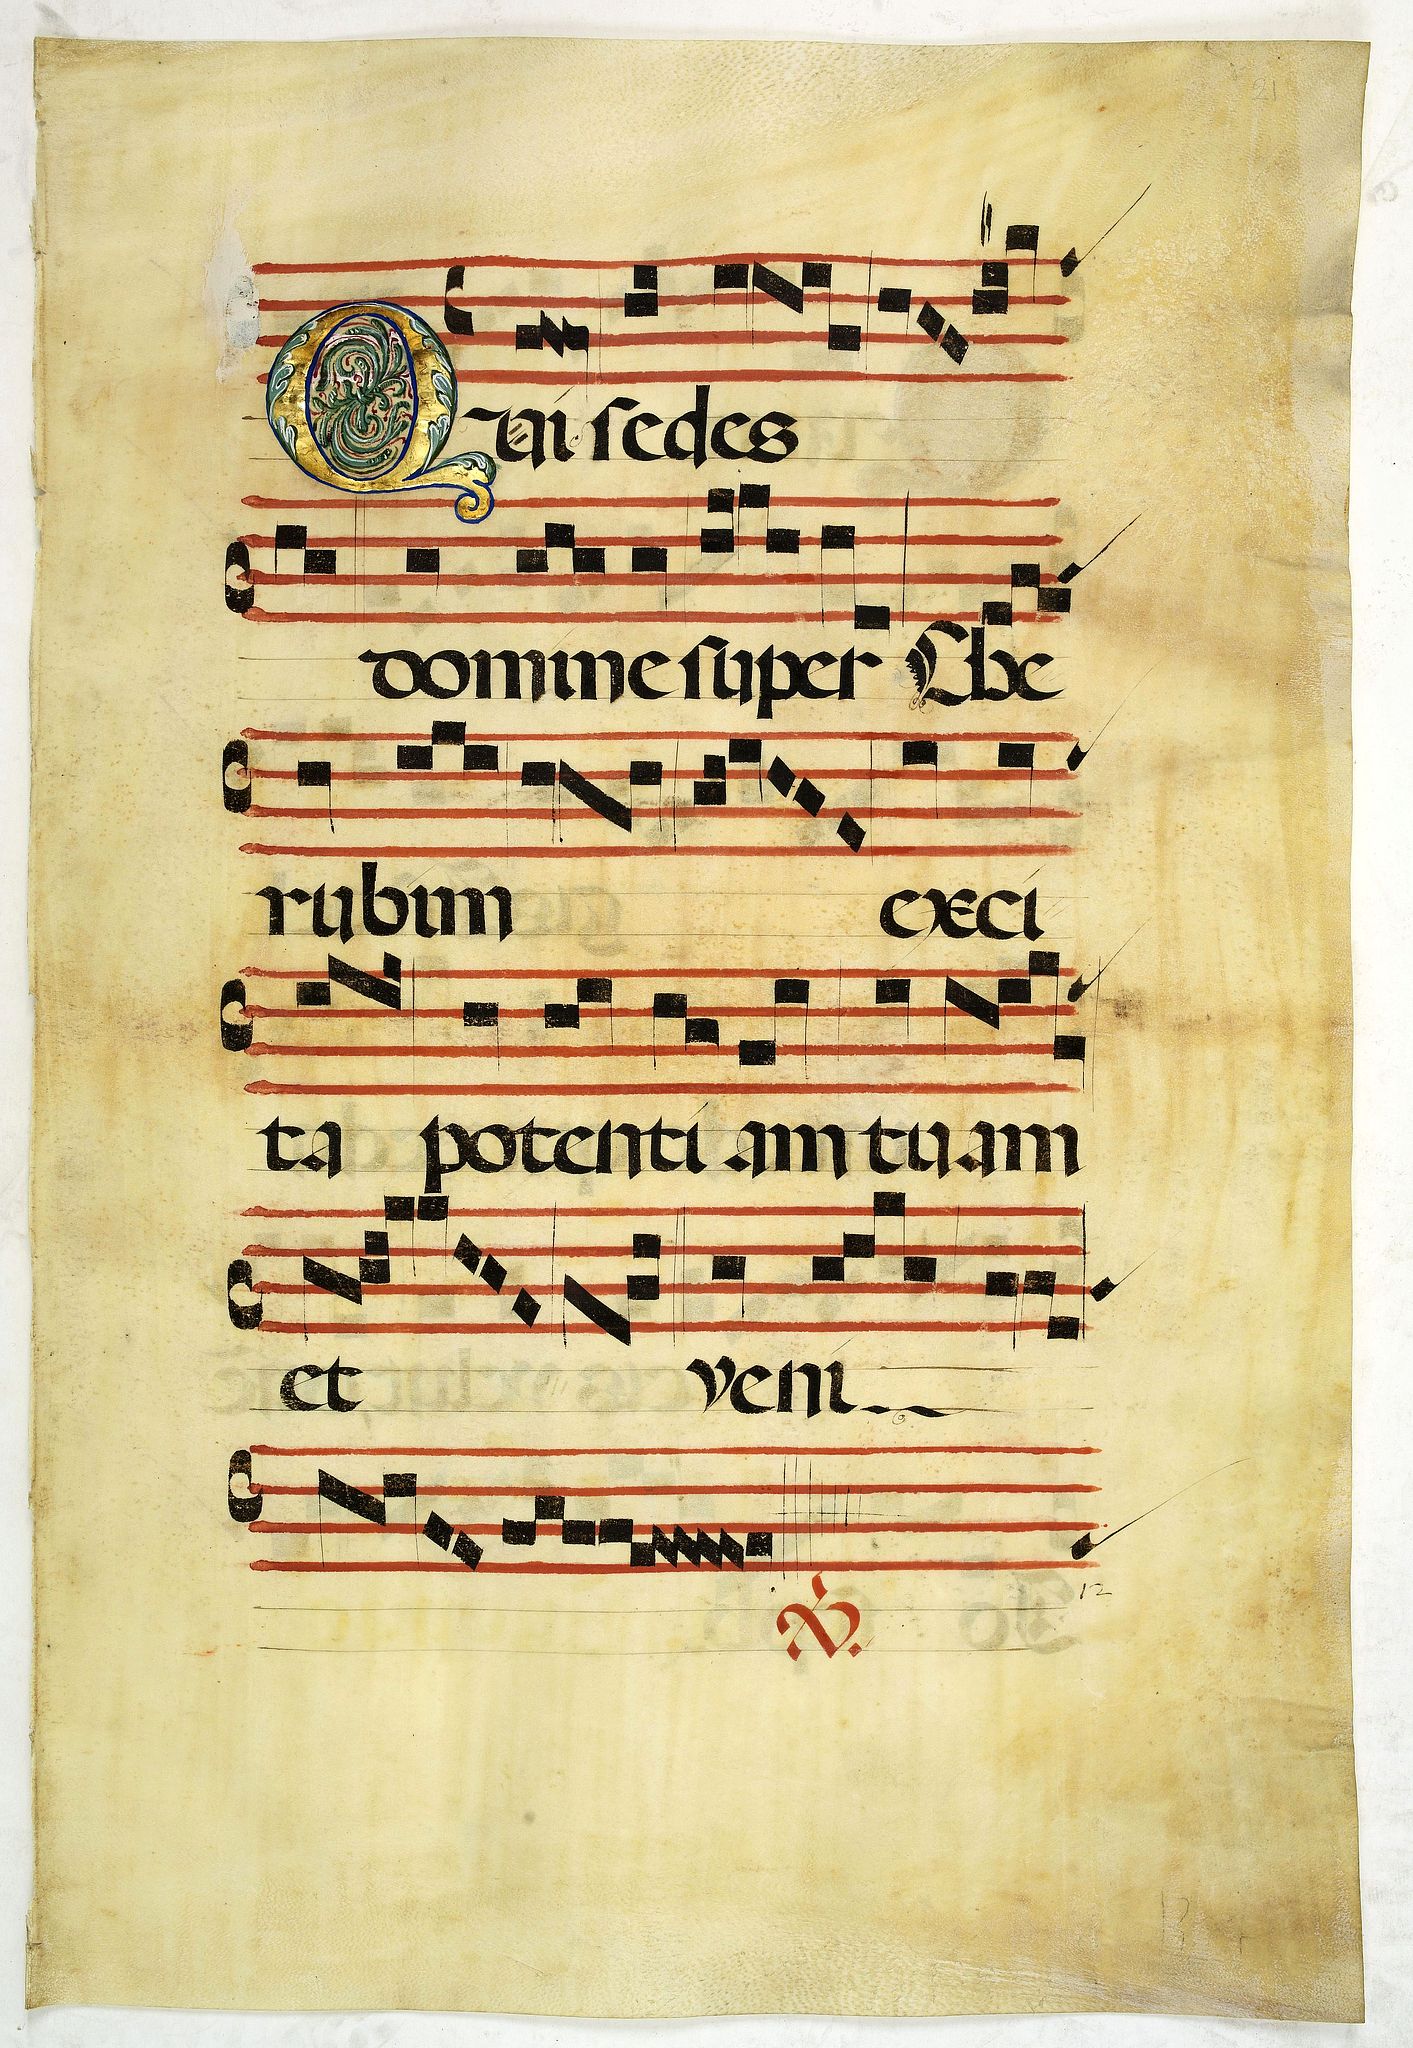 21
Qui sedes
domine super Che
rubim exci
ta potenti am tuam
et veni
12